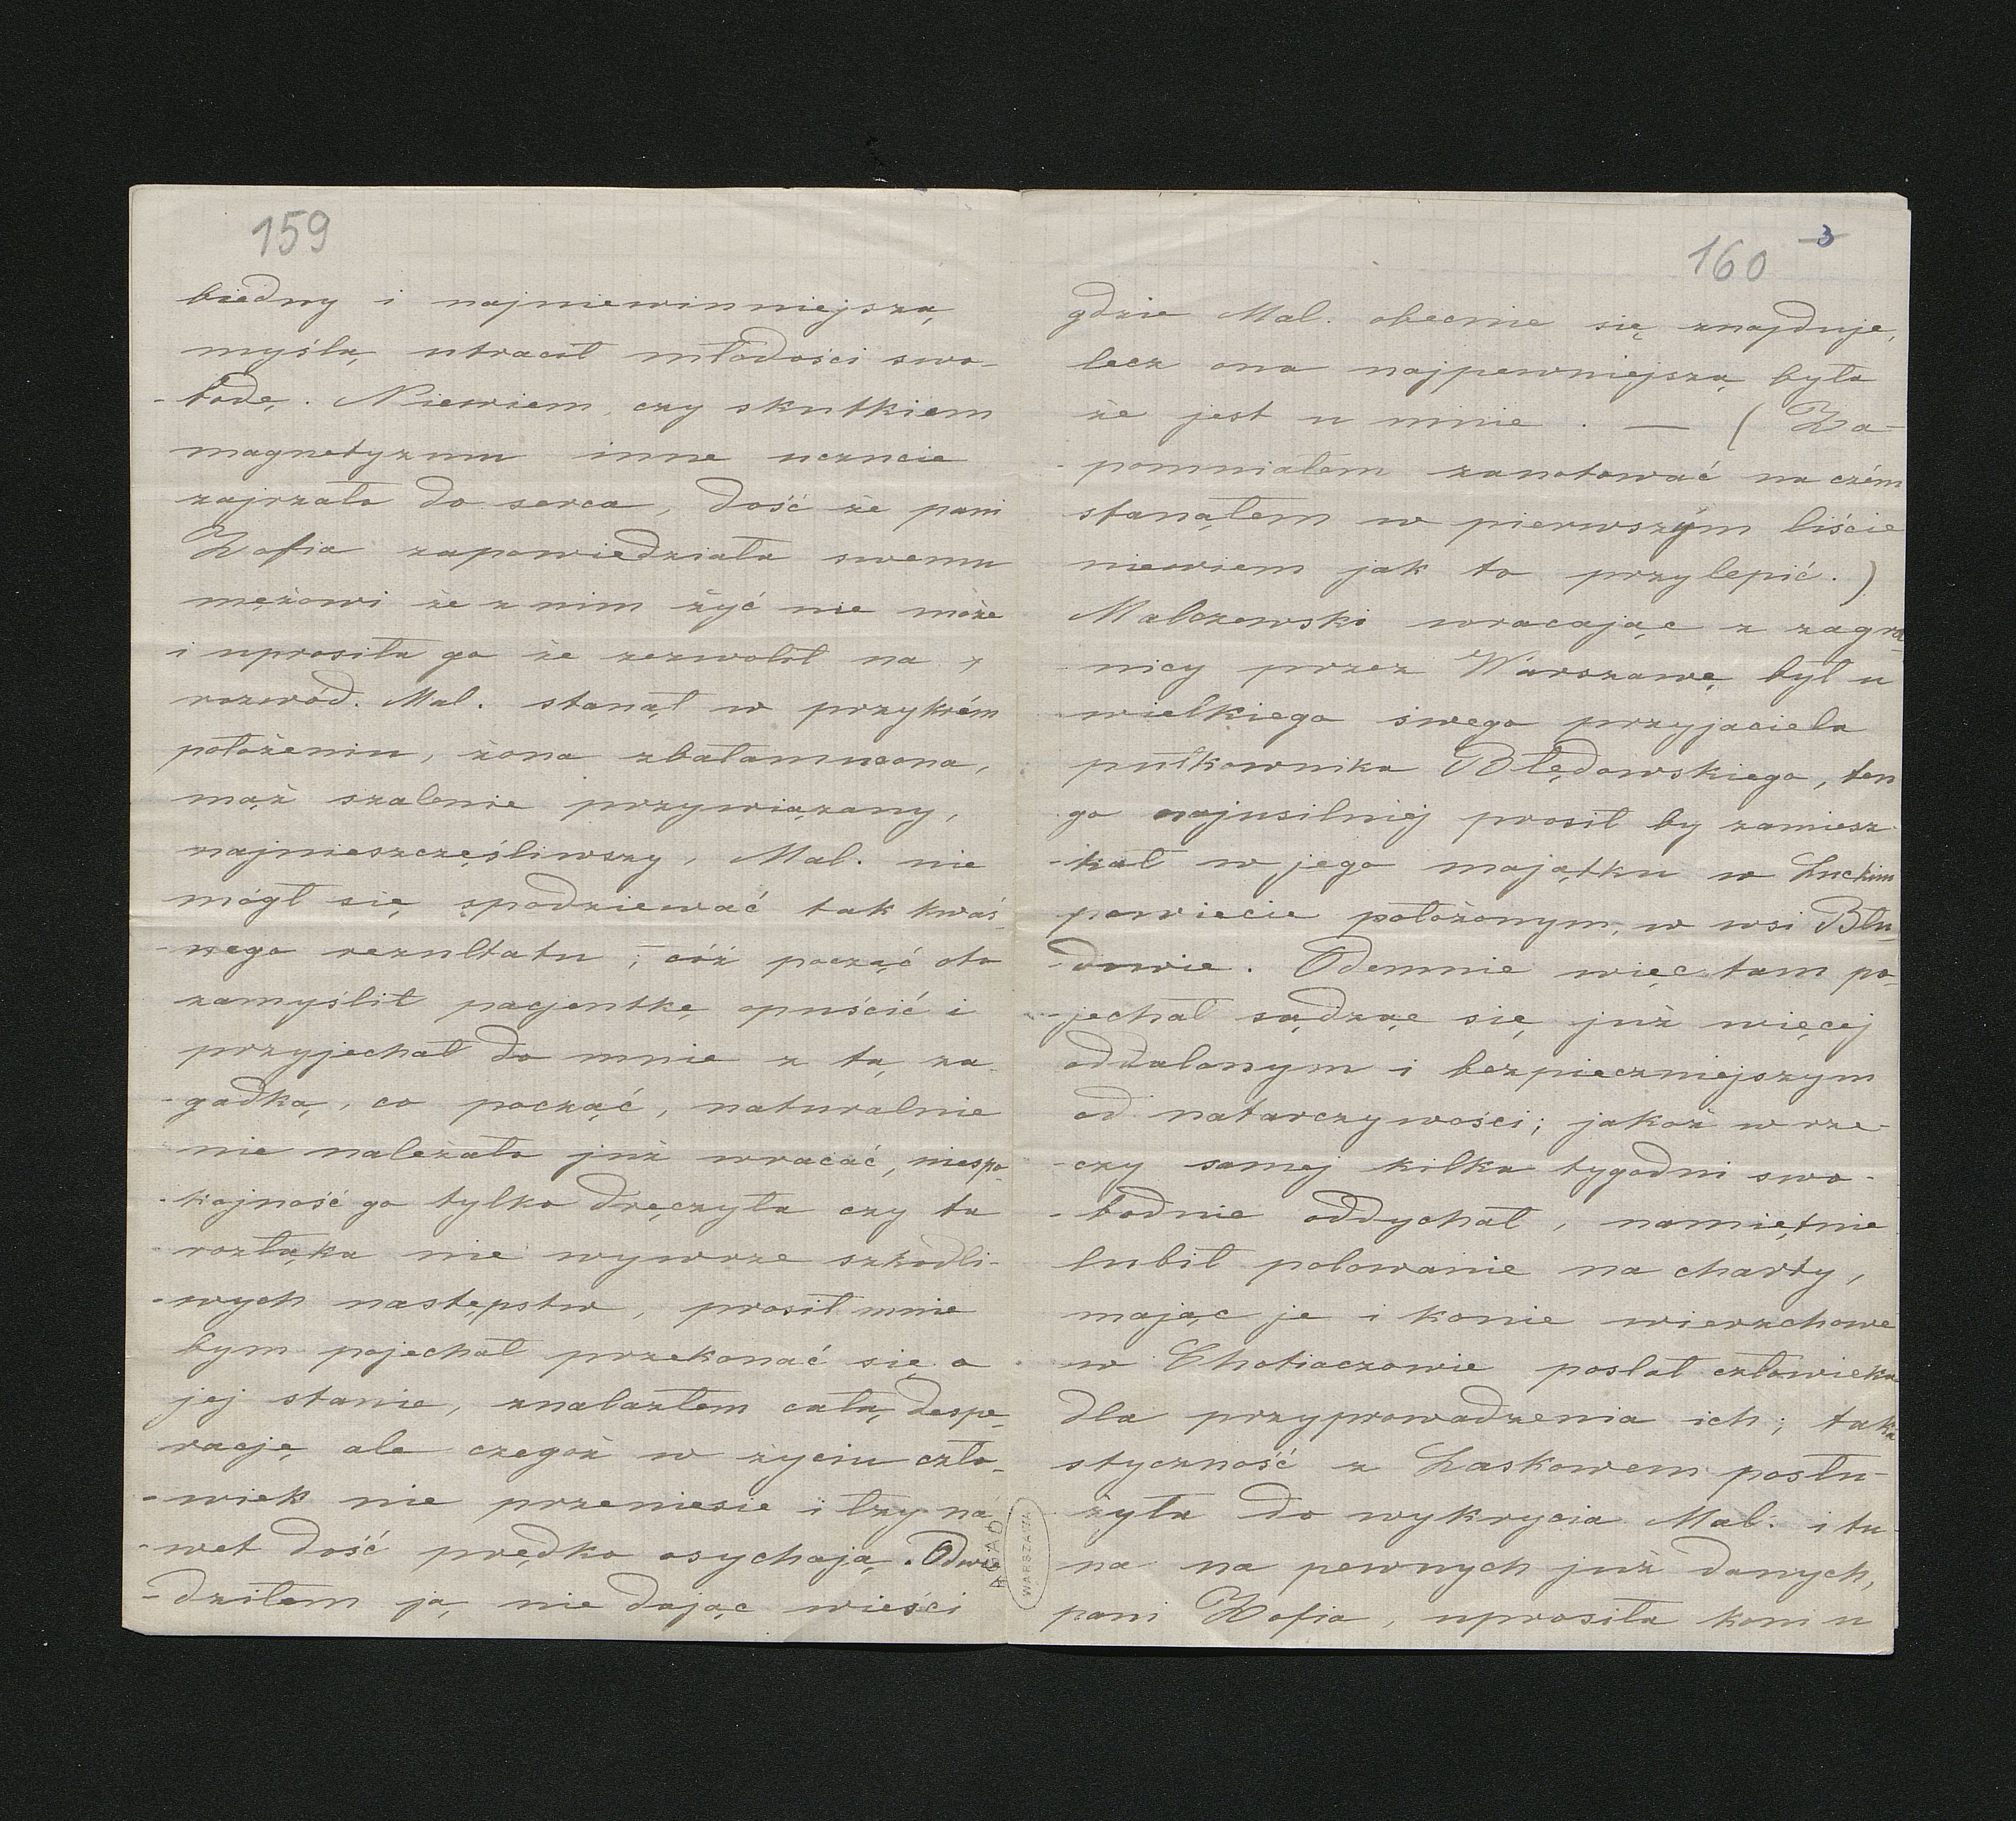 159
biedny i najniewinniejszą
myślą utracił młodości swo-
-bodę. Niewiem, czy skutkiem
magnetyzmu inne uczucie
zajrzało do serca, dość że pani
Zofia zapowiedziała swemu
mężowi że z nim żyć nie może
i uprosiła go że zezwolił na
rozwód. Mal. stanął w przykrém
położeniu, żona zbałamucona,
mąż szalenie przywiązany,
najnieszczęśliwszy, Mal. nie
mógł się spodziewać tak kwaś-
-nego rezultatu, cóż począć oto
zamyślił pacjentkę opuścić i
przyjechał do mnie z tą za-
-gadką, co począć, naturalnie
nie należało już wracać, niespo-
-kojność go tylko dręczyła czy ta
rozłąka nie wywrze szkodli-
-wych następstw, prosił mnie
bym pojechał przekonać się o
jej stanie, znalazłem całą despe-
rację, ale czegoż w życiu czło-
-wiek nie przeniesie i łzy na-
-wet dość prędko osychają. Odwie-
-dziłem ją, nie dając wieści
160 3
gdzie Mal. obecnie się znajduje,
lecz ona najpewniejszą była
że jest u mnie. — (Za-
-pomniałem zanotować na czém
stanąłem w pierwszym liście
niewiem jak to przylepić.)
Malczewski wracając z zagra-
nicy przez Warszawę był u
wielkiego swego przyjaciela
pułkownika Błędowskiego, ten
go najusilniej prosił by zamiesz-
-kał w jego majątku w Łuckim
powiecie położonym, w wsi Błu-
-dowie. Odemnie więc tam po-
-jechał sądząc się już więcej
oddalonym i bezpieczniejszym
od natarczywości; jakoż w rze-
-czy samej kilka tygodni swo-
-bodnie oddychał, namiętnie
lubił polowanie na charty,
mając je i konie wierzchowe
w Chotiaczowie posłał człowieka
dla przyprowadzenia ich; taka
styczność z Laskowem posłu-
-żyła do wykrycia Mal. i tu-
na na pewnych już danych,
pani Zofia, uprosiła kom u
AGAD
WARSZAWA